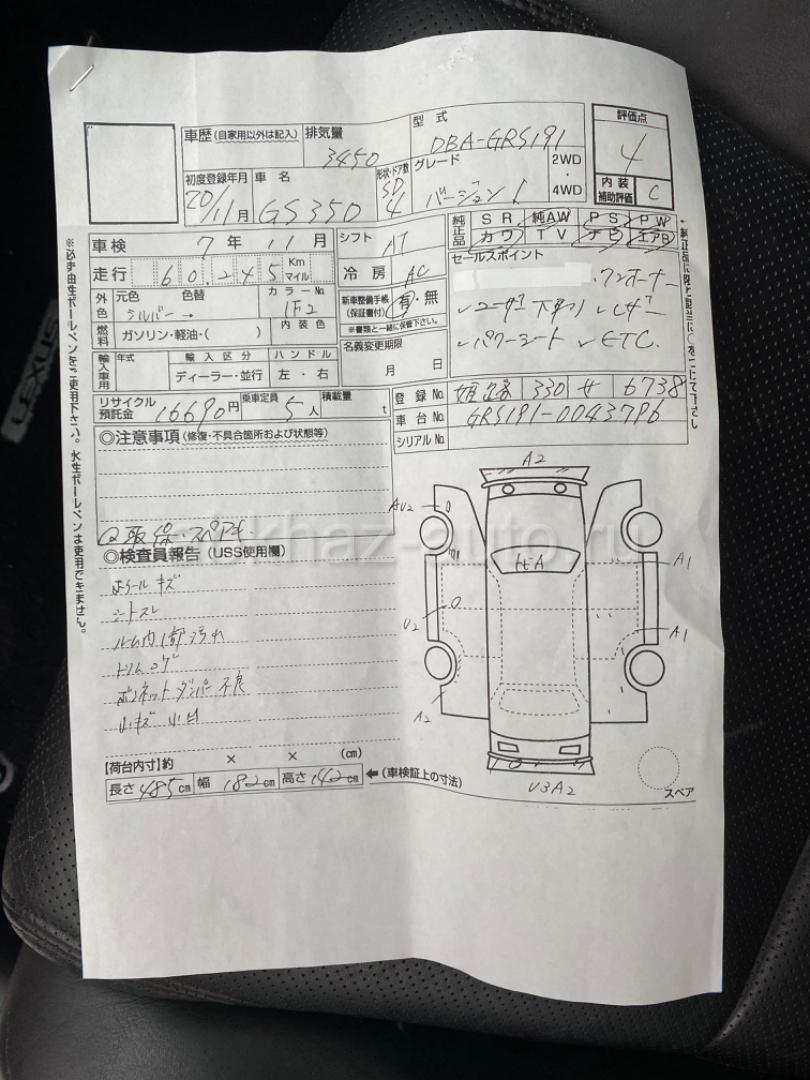 車歴(自家用以外は記入) 排気量 3450 型式 DBA-GRS191 評価点 4
初度登録年月 20/11月 車名 GS350 形状・ドア数 SD 4 グレード バージョンI 2WD・4WD 内装補助評価 C
車検 7年 11月 シフト AT 純正品 SR 純AW PS PW
カワ TV ナビ エアB
走行 60,245 Km マイル 冷房 AC セールスポイント
ワンオーナー
外色 元色 シルバー→ 色替 カラーNo. 1F2 新車整備手帳(保証書付) 有・無
✓ユーザー下取り ✓レザー
燃料 ガソリン・軽油・( ) 内装色 ※書類と一緒に保管下さい。
✓パワーシート ✓ETC.
輸入車用 年式 輸入区分 ハンドル 名義変更期限
ディーラー・並行 左・右 月 日
リサイクル預託金 16690円 乗車定員 5人 積載量 t
登録No. 姫路 330 せ 6738
車台No. GRS191-0043796
シリアルNo.
◎注意事項(修復・不具合箇所および状態等)
取 保・スペアキー
◎検査員報告(USS使用欄)
ホイールキズ
シートスレ
ルーム内1部汚れ
トリムハゲ
ボンネットダンパー不良
小キズ 小凹
A2
AU2
ヒA
A1
U2
A1
A2
U3A2
スペア
【荷台内寸】約 × × (cm)
長さ 485cm 幅 182cm 高さ 142cm ←(車検証上の寸法)
※必ず油性ボールペンをご使用下さい。水性ボールペンは使用できません。
LEXUS
akhaz-auto.ru